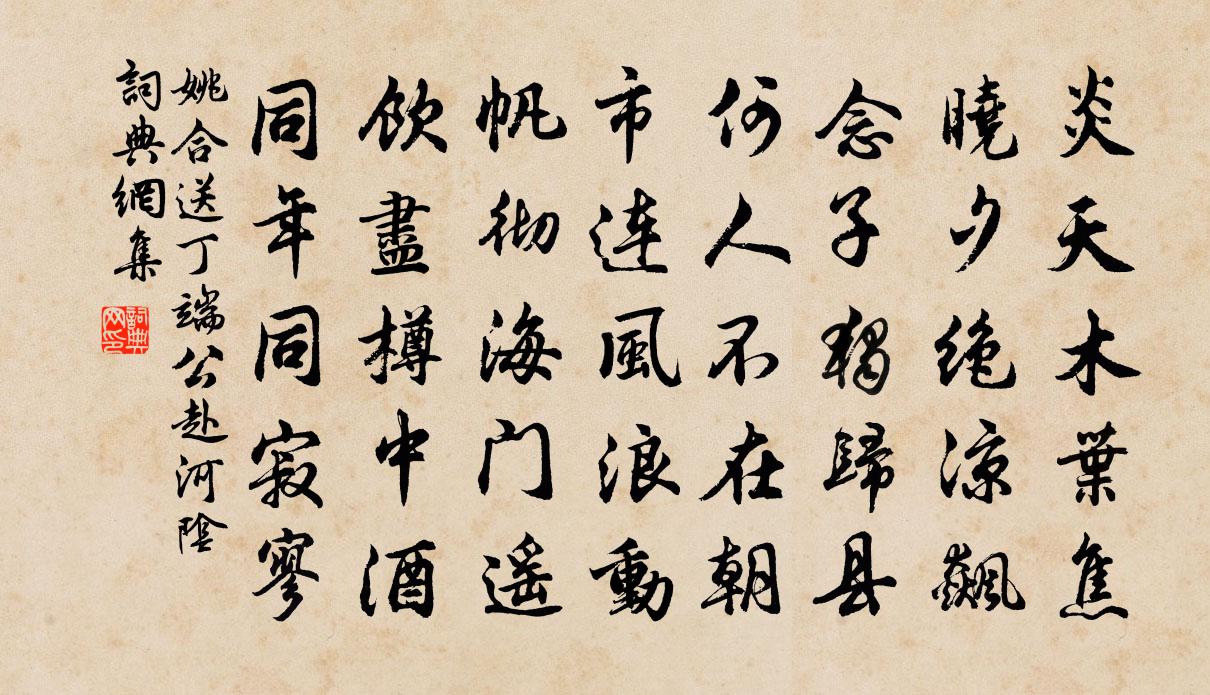 炎天木葉焦
曉夕絶凉飆
念子獨歸县
何人不在朝
市連風浪動
帆彻海门遥
飲盡樽中酒
同年同寂寥
姚合送丁端公赴河陰
詞典網集
詞典网印